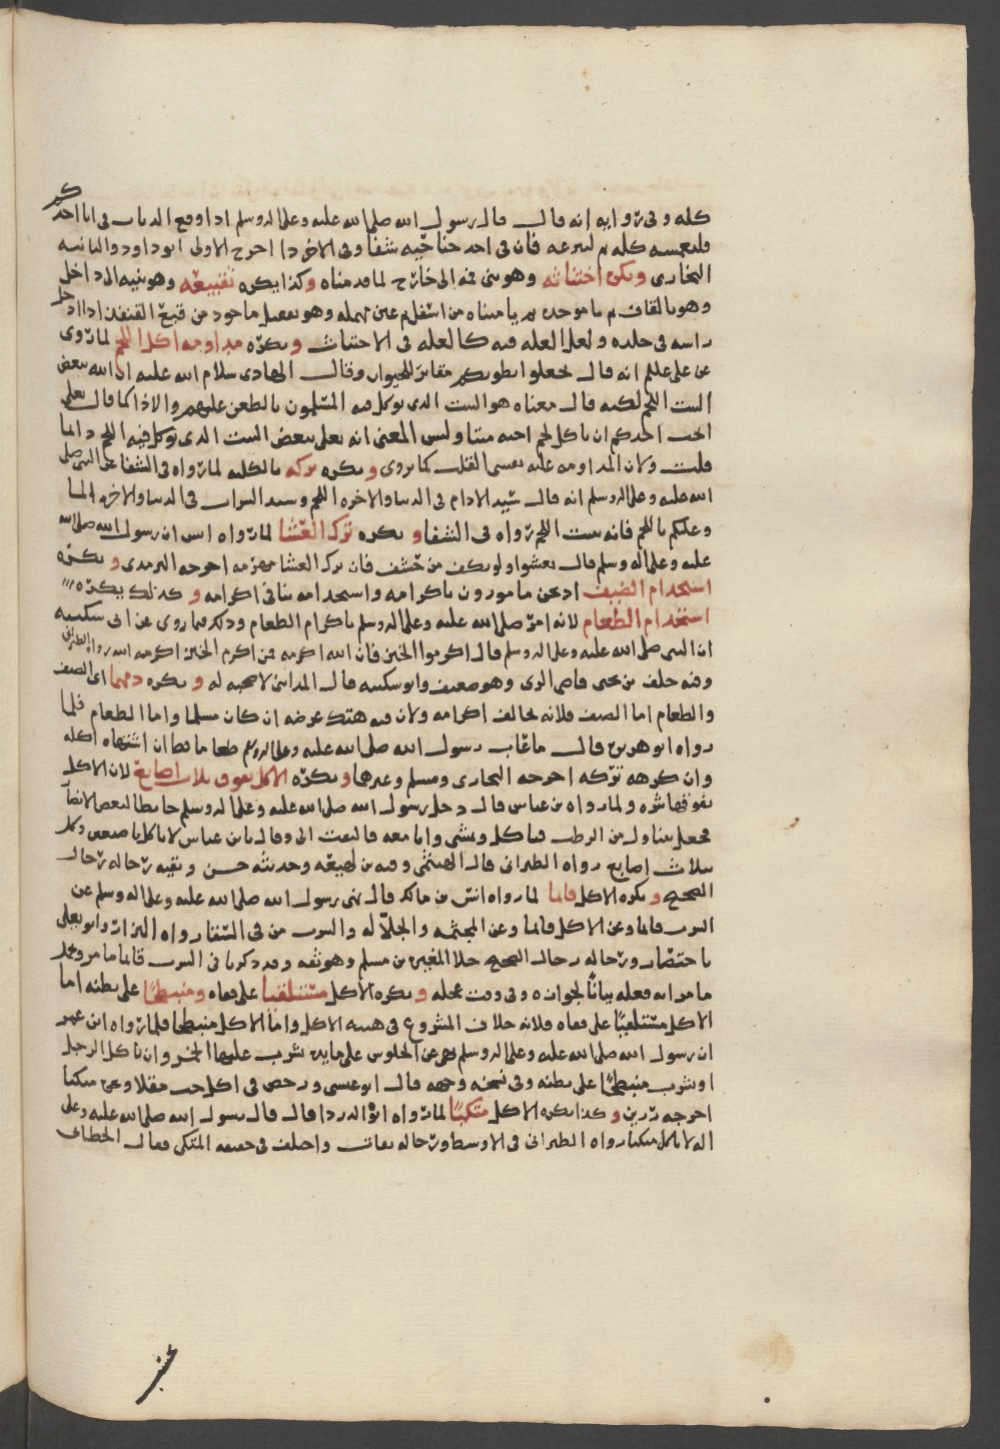 كله وفي رواية انه قال قال رسول الله صلى الله عليه وعلى اله وسلم اذا وقع الذباب في انا احدكم
فليغمسه كله ثم لينزعه فان في احد جناحيه شفا وفي الاخر دا اخرج الاولى ابو داود والثانيه
البخاري ويكره اختناثه وهو ثني فمه الى خارج لما قدمناه وكذا يكره تقبيعه وهو ثنيه الى داخل
وهو بالقاف ثم بالموحده ثم يا مثناه من اسفل ثم عين مهمله وهو تفعيل ماخوذ من قبع القنفذ اذا ادخل
راسه في جلده ولعل العله فيه كالعله في الاختناث ويكره مداومه اكل اللحم لما روي
عن علي عليلم انه قال لا تجعلوا بطونكم مقابر للحيوان وقال الهادي سلام الله عليه ان الله يبغض
البيت اللحم لكنه قال معناه هو البيت الذي توكل فيه المسلمون بالطعن عليهم والاذا كما قال تعالى
ايحب احدكم ان ياكل لحم اخيه ميتا وليس المعنى انه تعالى يبغض البيت الذي يوكل فيه اللحم دائما
قلت ولان المداومه عليه تقسي القلب كما يروى ويكره تركه بالكليه لما رواه في الشفا عن النبي صلى
الله عليه وعلى اله وسلم انه قال سيد الادام في الدنيا والاخره اللحم وسيد الشراب في الدنيا والاخره الما
وعليكم باللحم فانه ينبت اللحم رواه في الشفا ويكره ترك العشا لما رواه انس ان رسول الله صلى الله
عليه وعلى اله وسلم قال تعشوا ولو بكف من حشف فان ترك العشا مهرمه اخرجه الترمذي ويكره
استخدام الضيف اذ نحن مامورون باكرامه واستخدامه ينافي اكرامه وكذلك يكره
استخدام الطعام لانه امر صلى الله عليه وعلى اله وسلم باكرام الطعام وذلك فيما روي عن ابي سكينه
ان النبي صلى الله عليه وعلى اله وسلم قال اكرموا الخبز فان الله اكرمه فمن اكرم الخبز اكرمه الله رواه الطبراني
وفيه خلف بن يحيى قاضي الري وهو ضعيف وابو سكينه قال المدايني لا صحبه له ويكره ذمهما اي الضيف
والطعام اما الضيف فلانه يخالف اكرامه ولان فيه هتك عرضه ان كان مسلما واما الطعام فلما
رواه ابو هريره قال ما عاب رسول الله صلى الله عليه وعلى اله وسلم طعاما قط ان اشتهاه اكله
وان كرهه تركه اخرجه البخاري ومسلم وغيرهما ويكره الاكل بفوق ثلاث اصابع لان الاكل
بفوقها شره ولما رواه بن عباس قال دخل رسول الله صلى الله عليه وعلى اله وسلم حايطا لبعض الانصار
فجعل يتناول من الرطب فياكل ويمشي وانا معه فالتفت الي وقال يا بن عباس لا تاكل باصبعين وكل
بثلاث اصابع رواه الطبراني قال الهيثمي وفيه بن لهيعه وحديثه حسن وبقيه رجاله رجال
الصحيح ويكره الاكل قائما لما رواه انس بن مالك قال نهى رسول الله صلى الله عليه وعلى اله وسلم عن
الشرب قائما وعن الاكل قائما وعن المجثمه والجلاله والشرب من في السقا رواه البزار وابو يعلى
باختصار ورجاله رجال الصحيح خلا المغيره بن مسلم وهو ثقه وقد ذكرنا في الشرب قائما ما مر ومحمل
ما مر انه فعله بيانا لجوازه وفي وقت عجله ويكره الاكل مستلقيا على قفاه ومنبطحا على بطنه اما
الاكل مستلقيا على قفاه فلانه خلاف المشروع في هيئه الاكل واما الاكل منبطحا فلما رواه ابن عمر
ان رسول الله صلى الله عليه وعلى اله وسلم نهى عن الجلوس على مايده يشرب عليها الخمر وان ياكل الرجل
او يشرب منبطحا على بطنه وفي نسخه وجهه قال ابو عيسى ورخص في اكل حب مقلا وغيره متكئا
اخرجه رزين وكذا يكره الاكل متكئا لما رواه ابو الدردا قال قال رسول الله صلى الله عليه وعلى
اله لا تاكل متكئا رواه الطبراني في الاوسط ورجاله ثقات واختلف في حقيقه المتكي فقال الخطابي